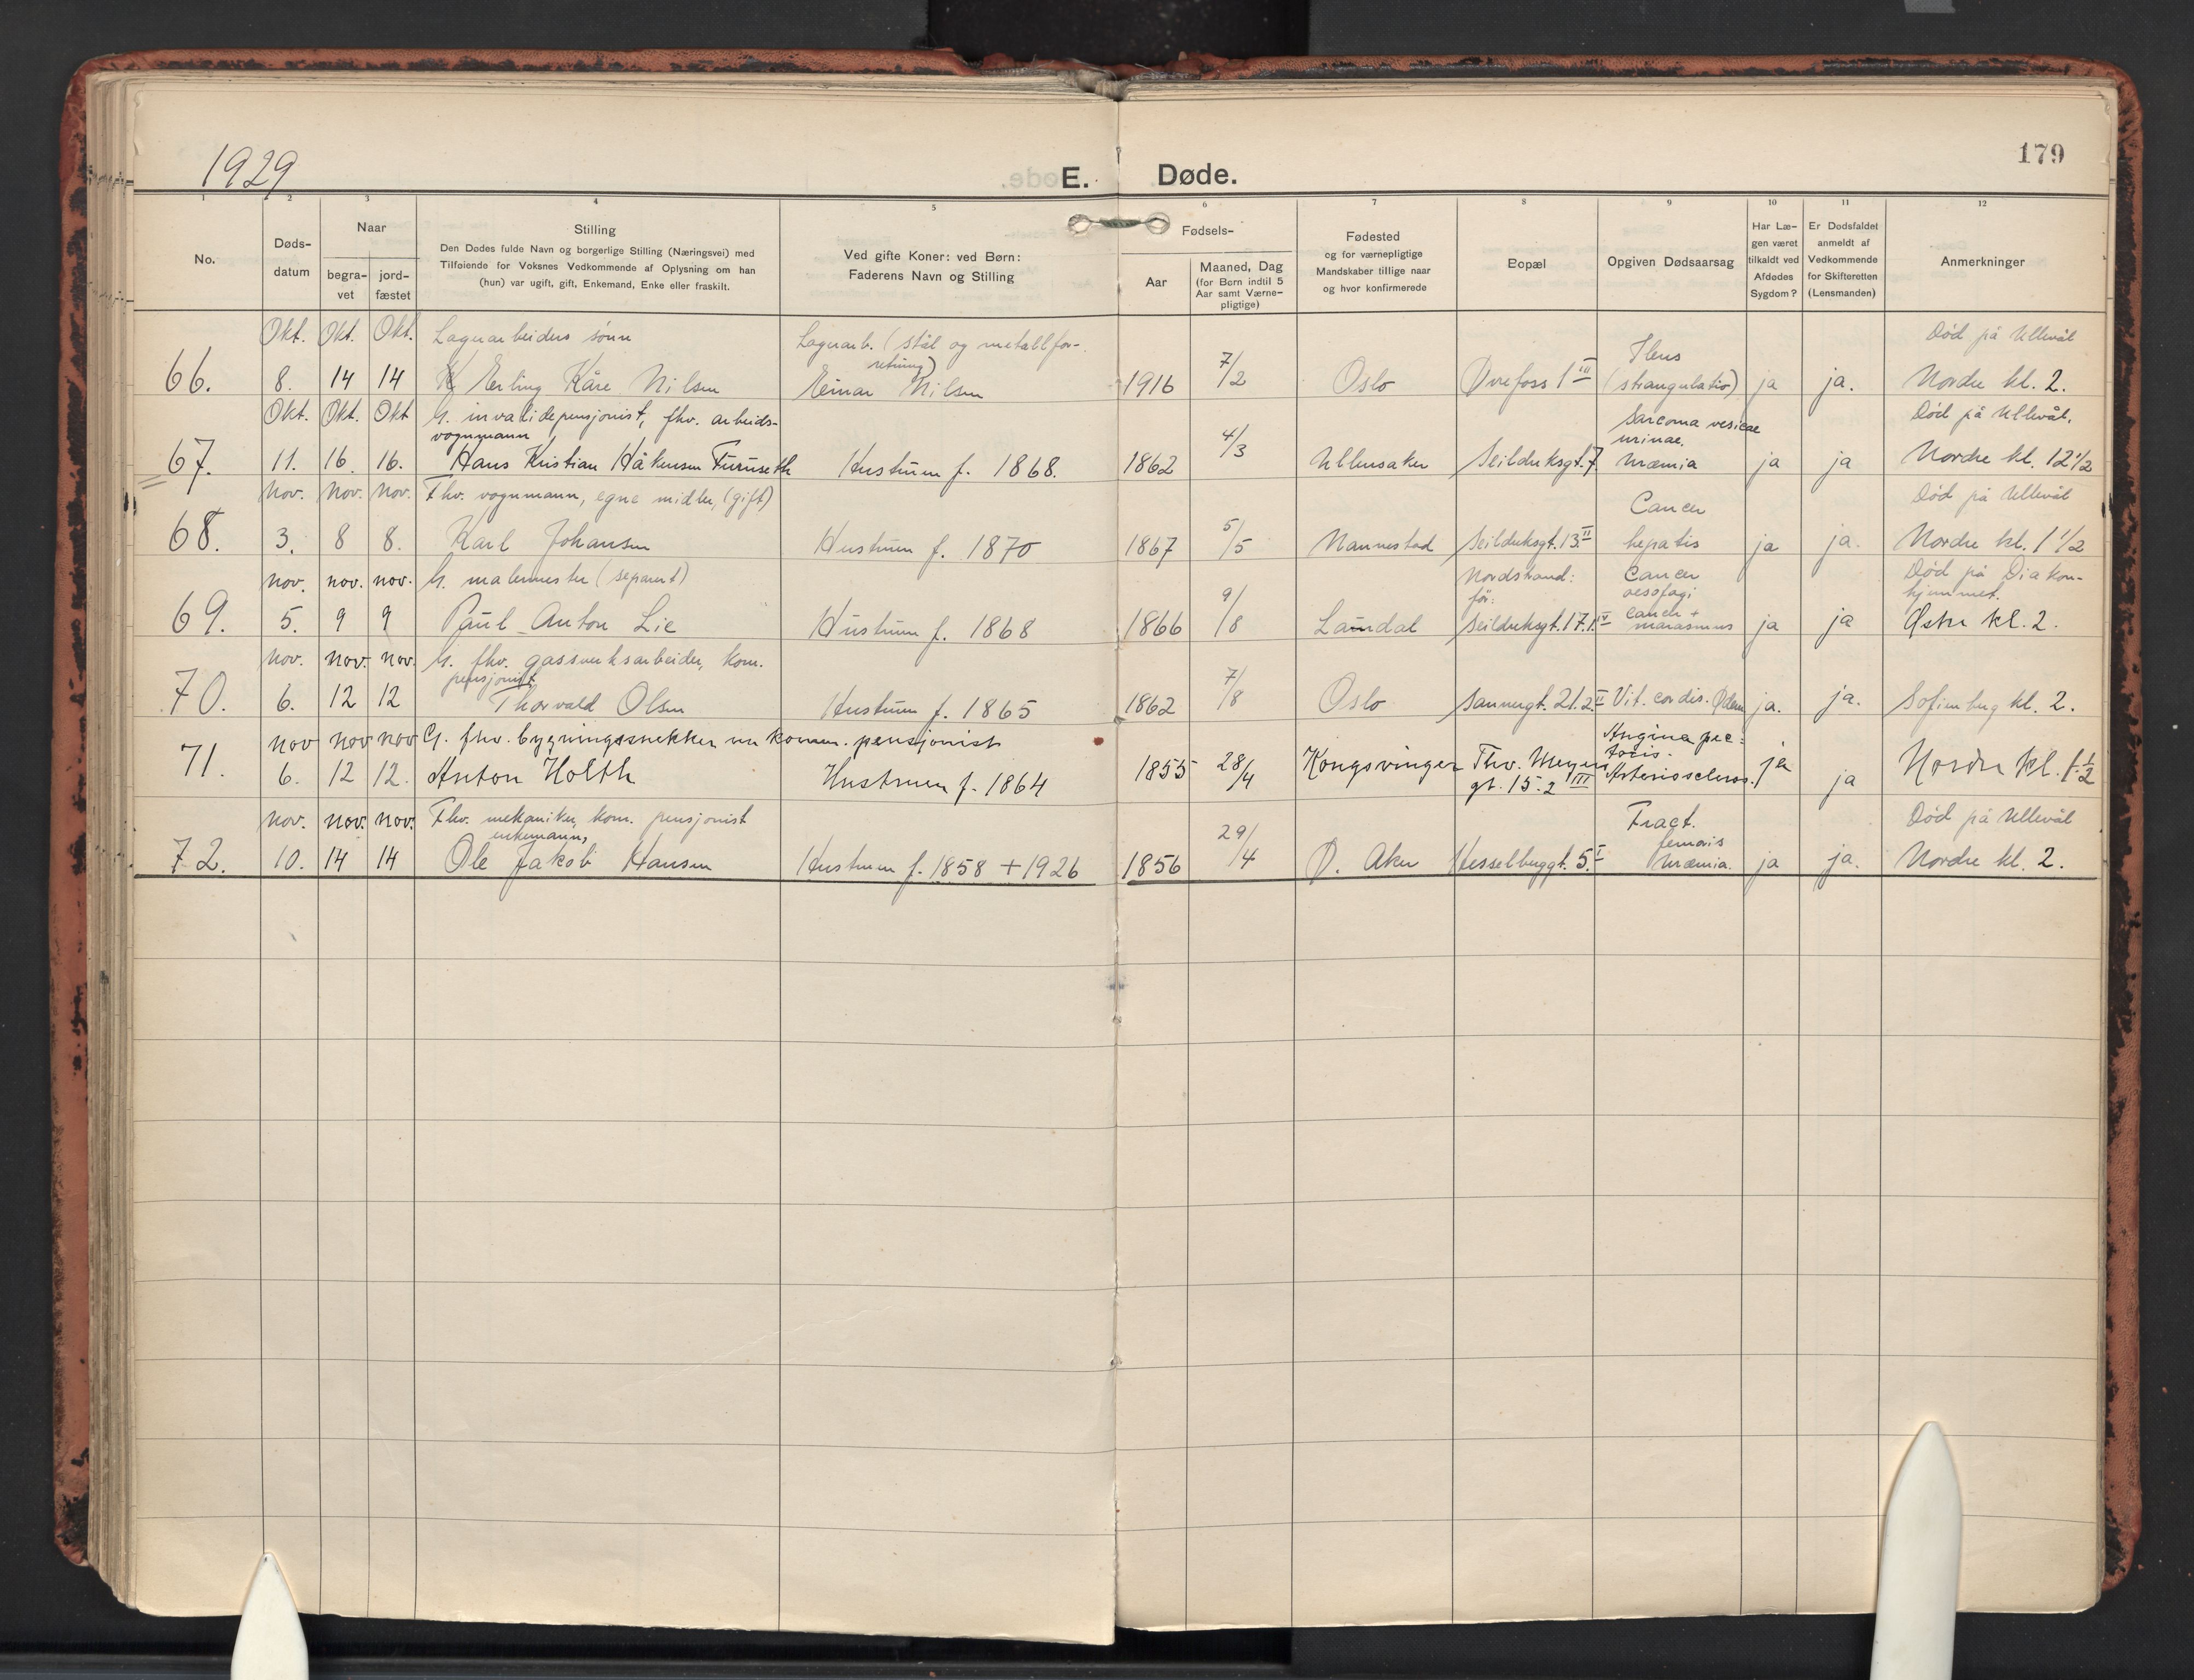 1929
E. Døde.
179
1 2 3 4 5 6 7 8 9 10 11 12
No.
Døds-
datum
Naar
begra-
vet
jord-
fæstet
Stilling
Den Dødes fulde Navn og borgerlige Stilling (Næringsvei) med
Tilføiende for Voksnes Vedkommende af Oplysning om han
(hun) var ugift, gift, Enkemand, Enke eller fraskilt.
Ved gifte Koner: ved Børn:
Faderens Navn og Stilling
Fødsels-
Aar
Maaned, Dag
(for Børn indtil 5
Aar samt Værne-
pligtige)
Fødested
og for værnepligtige
Mandskaber tillige naar
og hvor konfirmerede
Bopæl
Opgiven Dødsaarsag
Har Læ-
gen været
tilkaldt ved
Afdødes
Sygdom?
Er Dødsfaldet
anmeldt af
Vedkommende
for Skifteretten
(Lensmanden)
Anmerkninger
Okt. Okt. Okt. Lagerarbeiders sønn Lagerarb. (stål og metallfor- Død på Ullevål
retning) Ileus
66. 8. 14 14 Erling Kåre Nilsen Einar Nilsen 1916 7/2 Oslo Øvrefoss 1 III (strangulatio) ja ja. Nordre kl. 2.
Okt. Okt. Okt G. invalidepensjonist, fhv. arbeids- Sarcoma vesicae Død på Ullevål.
vognmann urinae.
67. 11. 16. 16. Hans Kristian Håkensen Furuseth Hustruen f. 1868. 1862 4/3 Ullensaker Seilduksgt. 7 Uræmia ja ja Nordre kl. 12 1/2
Nov. Nov. Nov. Fhv. vognmann, egne midler, (gift) Cancer Død på Ullevål
68. 3. 8 8. Karl Johansen Hustruen f. 1870 1867 5/5 Nannestad Seilduksgt. 13 II hepatis ja ja. Nordre kl. 1 1/2
nov. nov. nov. G. malermester (separert) Nordstrand: Cancer Død på Diakon-
før: oesofagi hjemmet.
69. 5. 9 9 Paul Anton Lie Hustruen f. 1868 1866 9/8 Laudal Seilduksgt. 17.1 IV cancer + marasmus ja ja Østre kl. 2.
nov. nov. nov. G. fhv. gassverksarbeider, kom.
pensjonist
70. 6. 12 12 Thorvald Olsen Hustruen f. 1865 1862 7/8 Oslo Sannergt. 21.2 II Vit. cordis. Ødem ja. ja. Sofienberg kl. 2.
nov nov nov G. fhv. bygningssnekker nu komm. pensjonist Angina pec-
toris.
71. 6. 12 12. Anton Holth Hustruen f. 1864 1855 28/4 Kongsvinger Thv. Meyers Arterioscleros. ja ja Nordre kl. 1 1/2
gt. 15. 2 III
nov. nov. nov. Fhv. mekaniker, kom. pensjonist Fract. Død på Ullevål
enkemann, femoris
72. 10. 14 14 Ole Jakob Hansen Hustruen f. 1858 + 1926 1856 29/4 Ø. Aker Hesselberggt. 5. I Uræmia. ja ja. Nordre kl. 2.